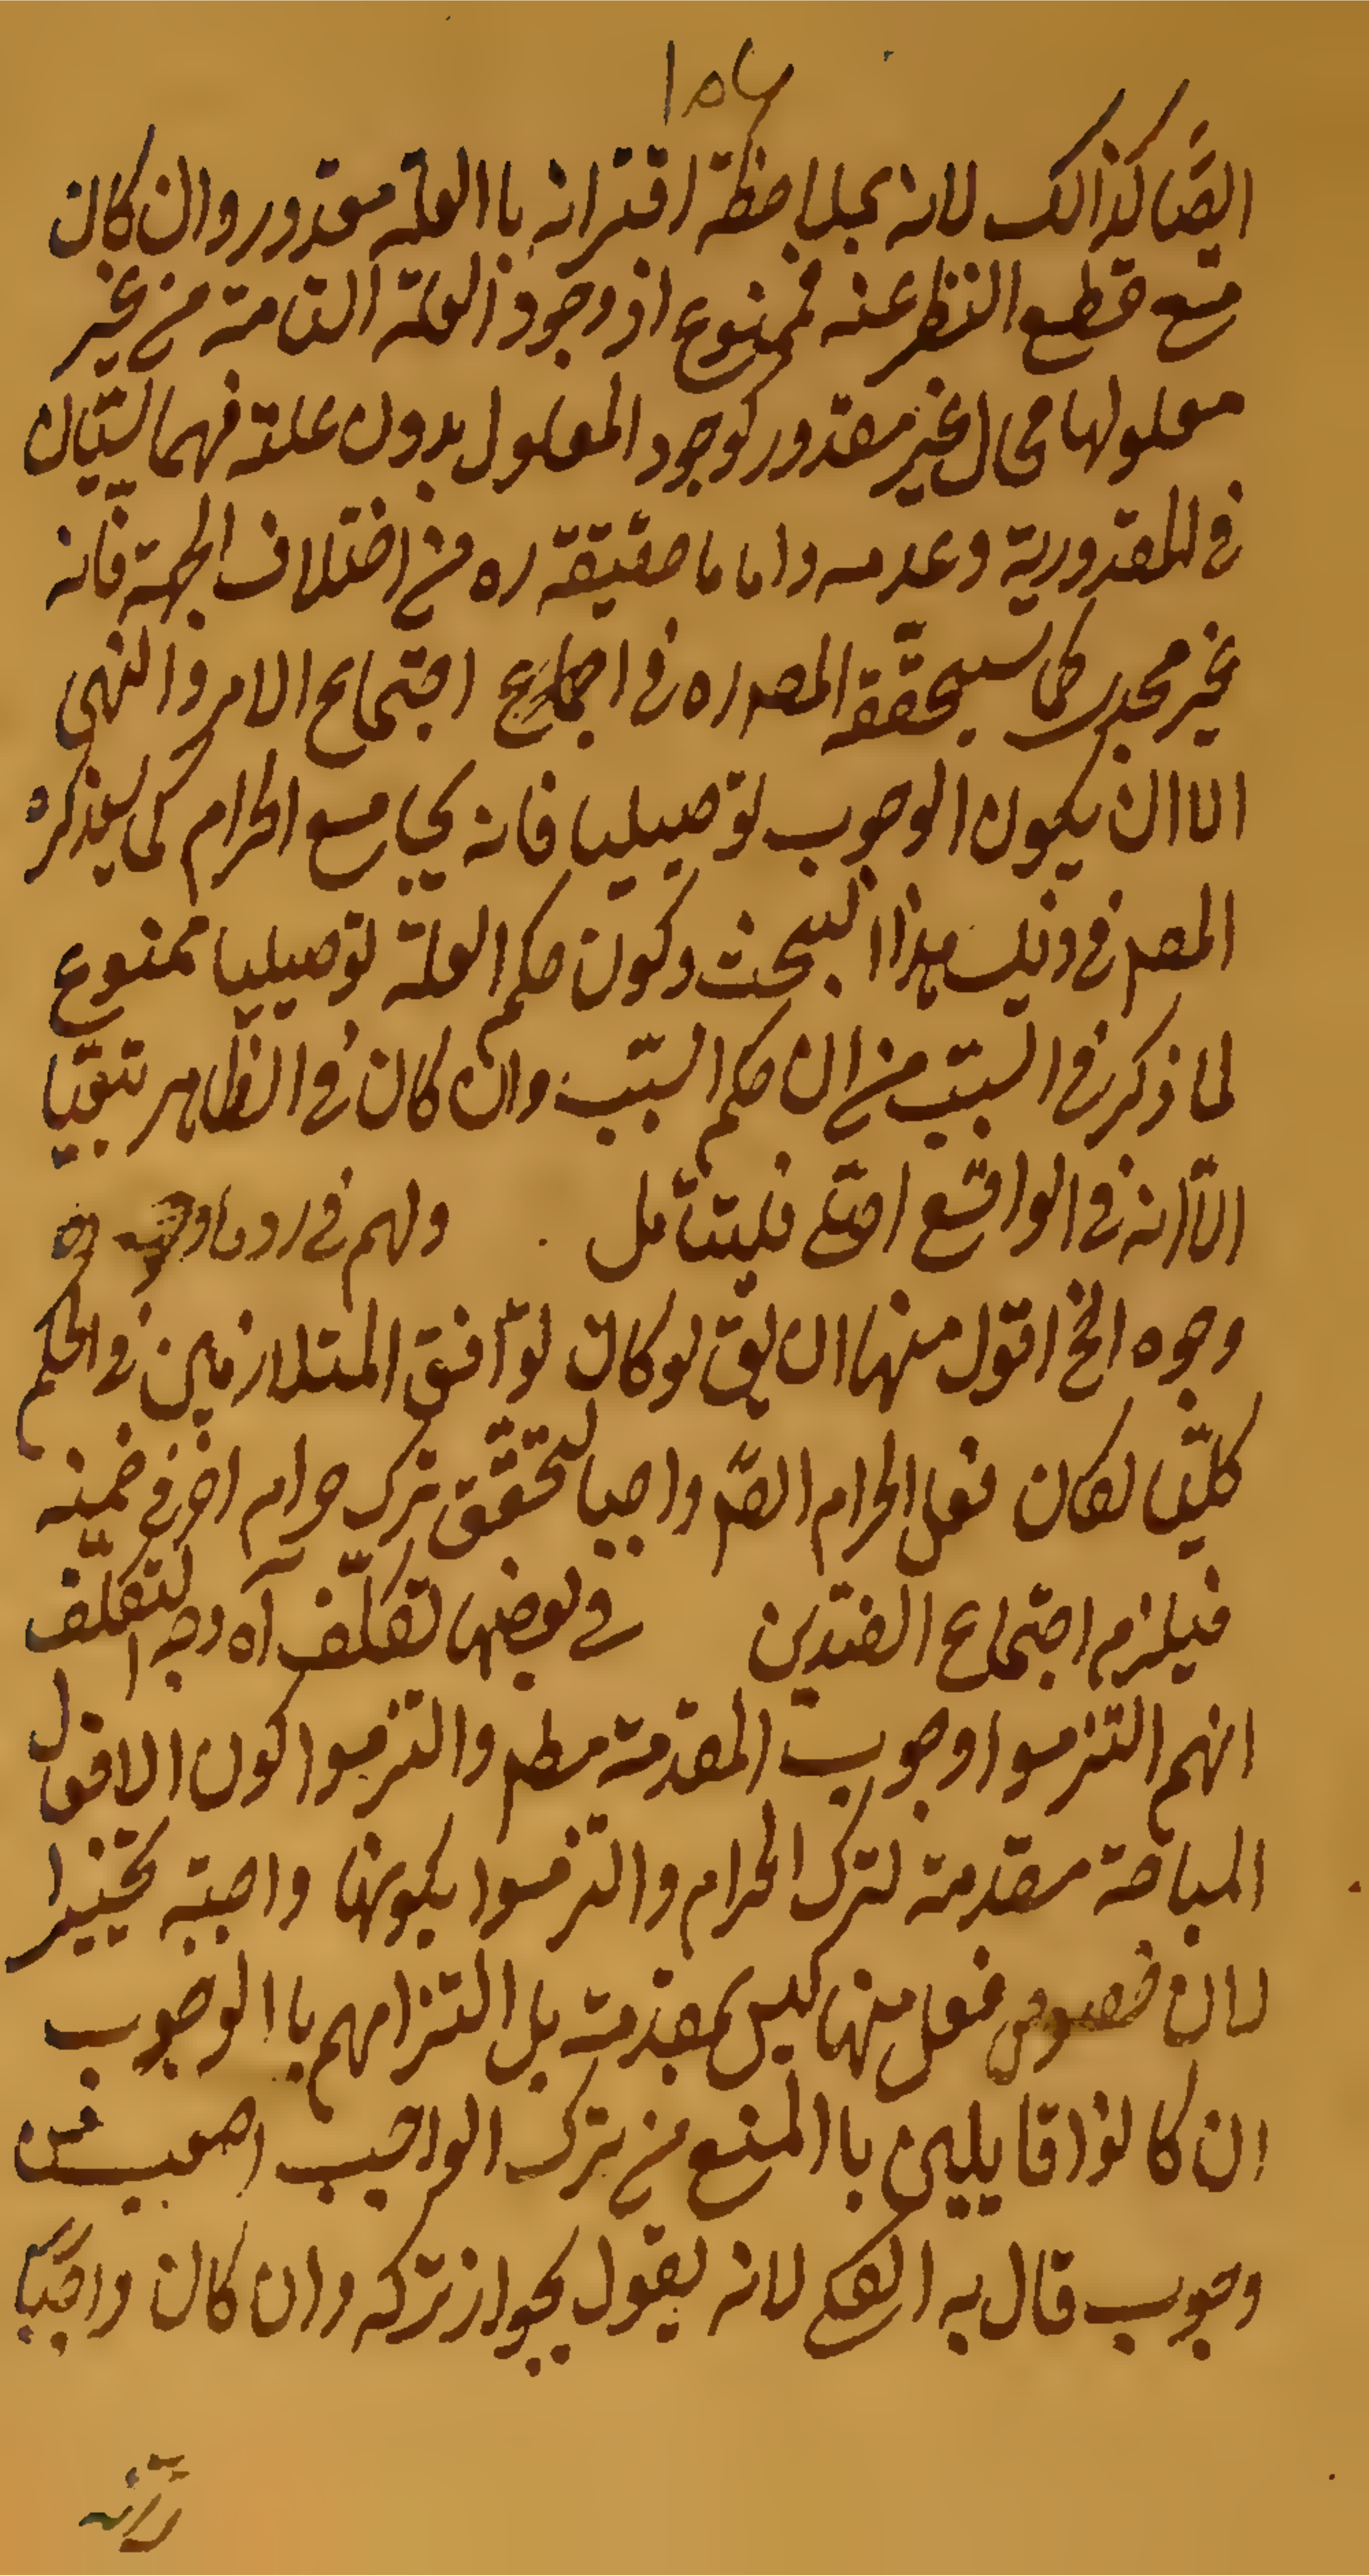 ١٥٧
ايضا كذالك لانه بملاحظة اقترانه باالعلة مقدور وان كان
مع قطع النظر عنه فممنوع اذ وجود العلة التامة من غير
معلولها محال غير مقدور كوجود المعلول بدون علته فهما سيّان
فى المقدورية وعدمه واما ما حقيقته ره من اختلاف الجهة فانه
غير مجد كما سيحققه المصره فى اجتماع الامر والنهى
الا ان يكون الوجوب توصيليا فانه يجامع الحرام كما يذكره
المصر فى ذيل هذا البحث وكون حكم العلة توصيليا ممنوع
لما ذكر فى السبب من ان حكم السبب وان كان فى الظاهر تبعيّا
الّا انه فى الواقع اصلى فليتأمل ولهم فى رد ما
وجوه الخ اقول منها ان يق لو كان توافق المتلازمين فى الحكم
كليّا لكان فعل الحرام ايضا واجبا لتحقق ترك حرام اخر فى ضمنه
فيلزم اجتماع الضدّين فى بعضها تكلّف آه وجه التكلّف
انهم التزموا وجوب المقدمة مطم والتزموا كون الافعال
المباحة مقدمة لترك الحرام والتزموا بكونها واجبة تخييرا
لان خصوص فعل منها ليس بمقدمة بل التزامهم باالوجوب
ان كانوا قايلين باالمنع من ترك الواجب اصعب من
وجوب قال به الكعبى لانه يقول بجواز تركه وان كان واجبًا